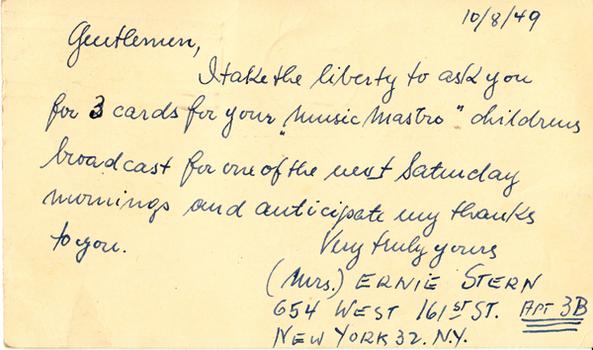 10/8/49
Gentlemen,
I take the liberty to ask you
for 3 cards for your „Music Mastro" childrens
broadcast for one of the next Saturday
mornings and anticipate my thanks
to you.
Very truly yours
(Mrs.) ERNIE STERN
654 WEST 161ST ST. APT 3B
NEW YORK 32. N.Y.